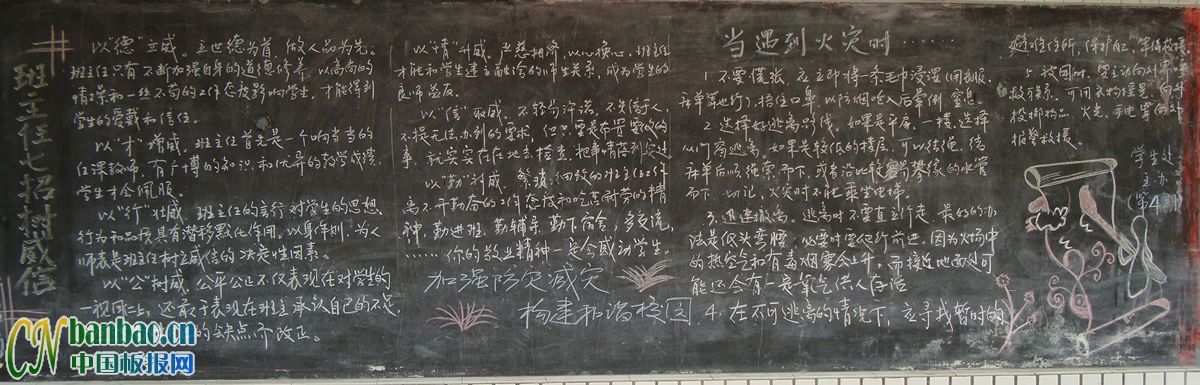 班主任七招树威信
以“德”立威。立世德为首,做人品为先。
班主任只有不断加强自身的道德修养,以高尚的
情操和一丝不苟的工作态度影响学生,才能得到
学生的爱戴和信任。
以“才”增威,班主任首先是一个响当当的
任课教师,有广博的知识和优异的教学成绩,
学生才会佩服。
以“行”壮威,班主任的言行对学生的思想、
行为和品德具有潜移默化作用。以身作则,为人
师表是班主任树立威信的决定性因素。
以“公”树威,公平公正不仅表现在对学生的
一视同仁上,还敢于表现在班主承认自己的不足
的缺点而改正。
以“情”升威,严慈相济,以心换心,班主任
才能和学生建立融洽的师生关系,成为学生的
良师益友。
以“信”取威。不轻易许诺,不失信于人,
不提无法办到的要求,但只要是布置要改的
事,就实实在在地去检查,把事情落到实处
以“勤”补威,繁琐、细致的班主任工作
离不开勤恳的工作态度和吃苦耐劳的精
神,勤进班,勤辅导,勤下宿舍,多交流,
……你的敬业精神一定会感动学生。
加强防灾减灾
构建和谐校园
当遇到火灾时……
1.不要慌张,应立即将一条毛巾浸湿(用衣服、
床单等也行),捂住口鼻,以防烟呛入后晕倒、窒息。
2.选择好逃离路线。如果是平房、一楼,选择
从门窗逃离。如果是较低的楼层,可以结绳,结
床单后顺绳索而下,或者沿比较容易攀缘的水管
而下,切记,火灾时不能乘坐电梯。
3.迅速撤离。逃离时不要直立行走,最好的办
法是低头弯腰,必要时要爬行前进,因为火场中
的热空气和有毒烟雾会上升,而接近地面处可
能还会有一定氧气供人存活
4.在不可逃离的情况下,应寻找暂时的
避难住所,保护自己,等候救援
5.被困时,要主动向外界
学生处
主办
(第4期)
CNbanbao.cn
中国板报网